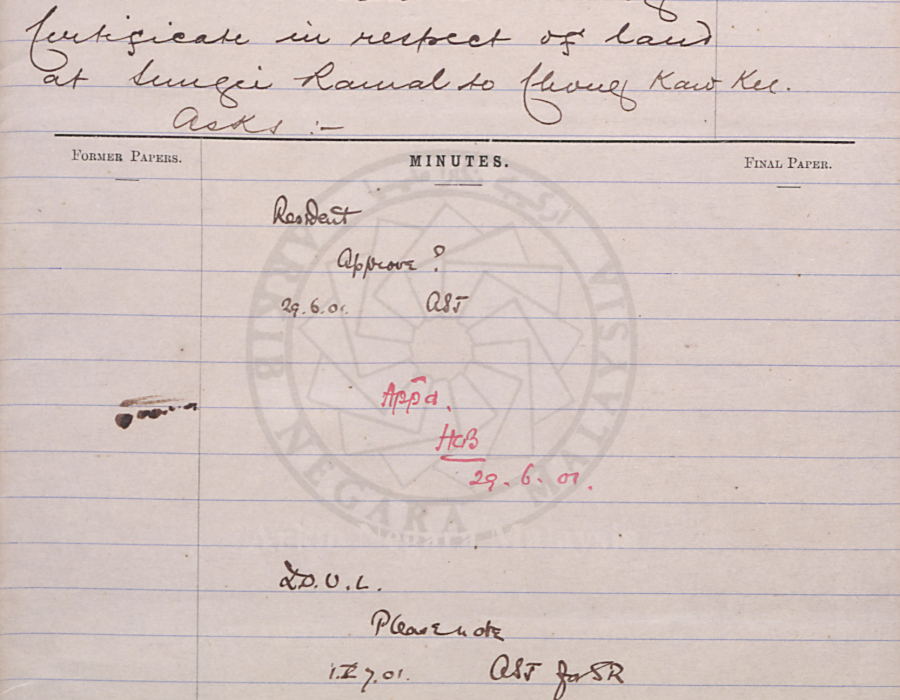 Certificate in respect of land
at Sungei Ramal to Chong Kaw Kee.
Asks :-
FORMER PAPERS.
MINUTES.
FINAL PAPER.
Resident
Approve ?
29.6.01. AST
App'd.
HCB
29.6.01.
D.O.U.L.
Please note
7.01. AST for SR
ARKIB NEGARA MALAYSIA
Arkib Negara Malaysia